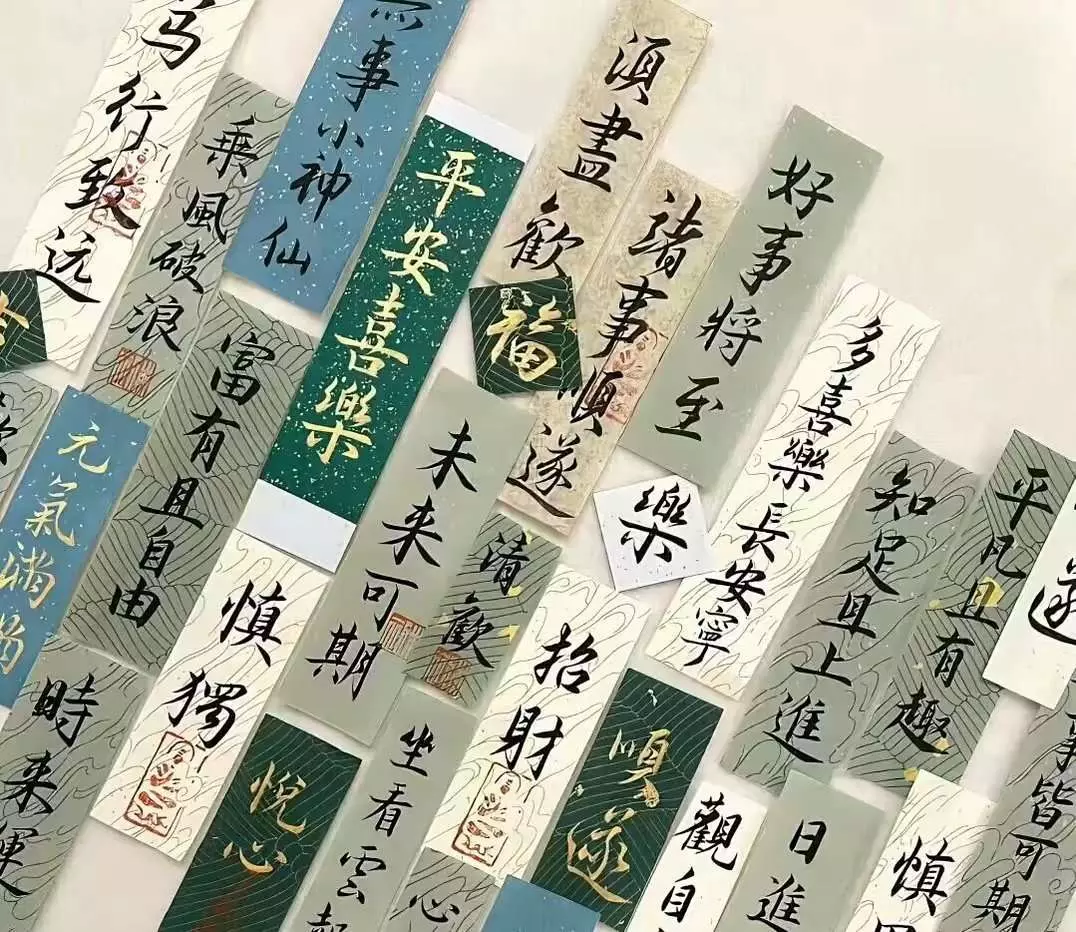 马行致远
乘風破浪
事小神仙
平安喜樂
須盡歡
諸事順遂
好事将至
福
富有且自由
元氣满满
未来可期
清歡
樂
多喜樂長安寧
知足且上進
平凡且有趣
遂
慎獨
時来運
悦心
坐看雲起
心
招財
順遂
觀自
日進
慎
事皆可期